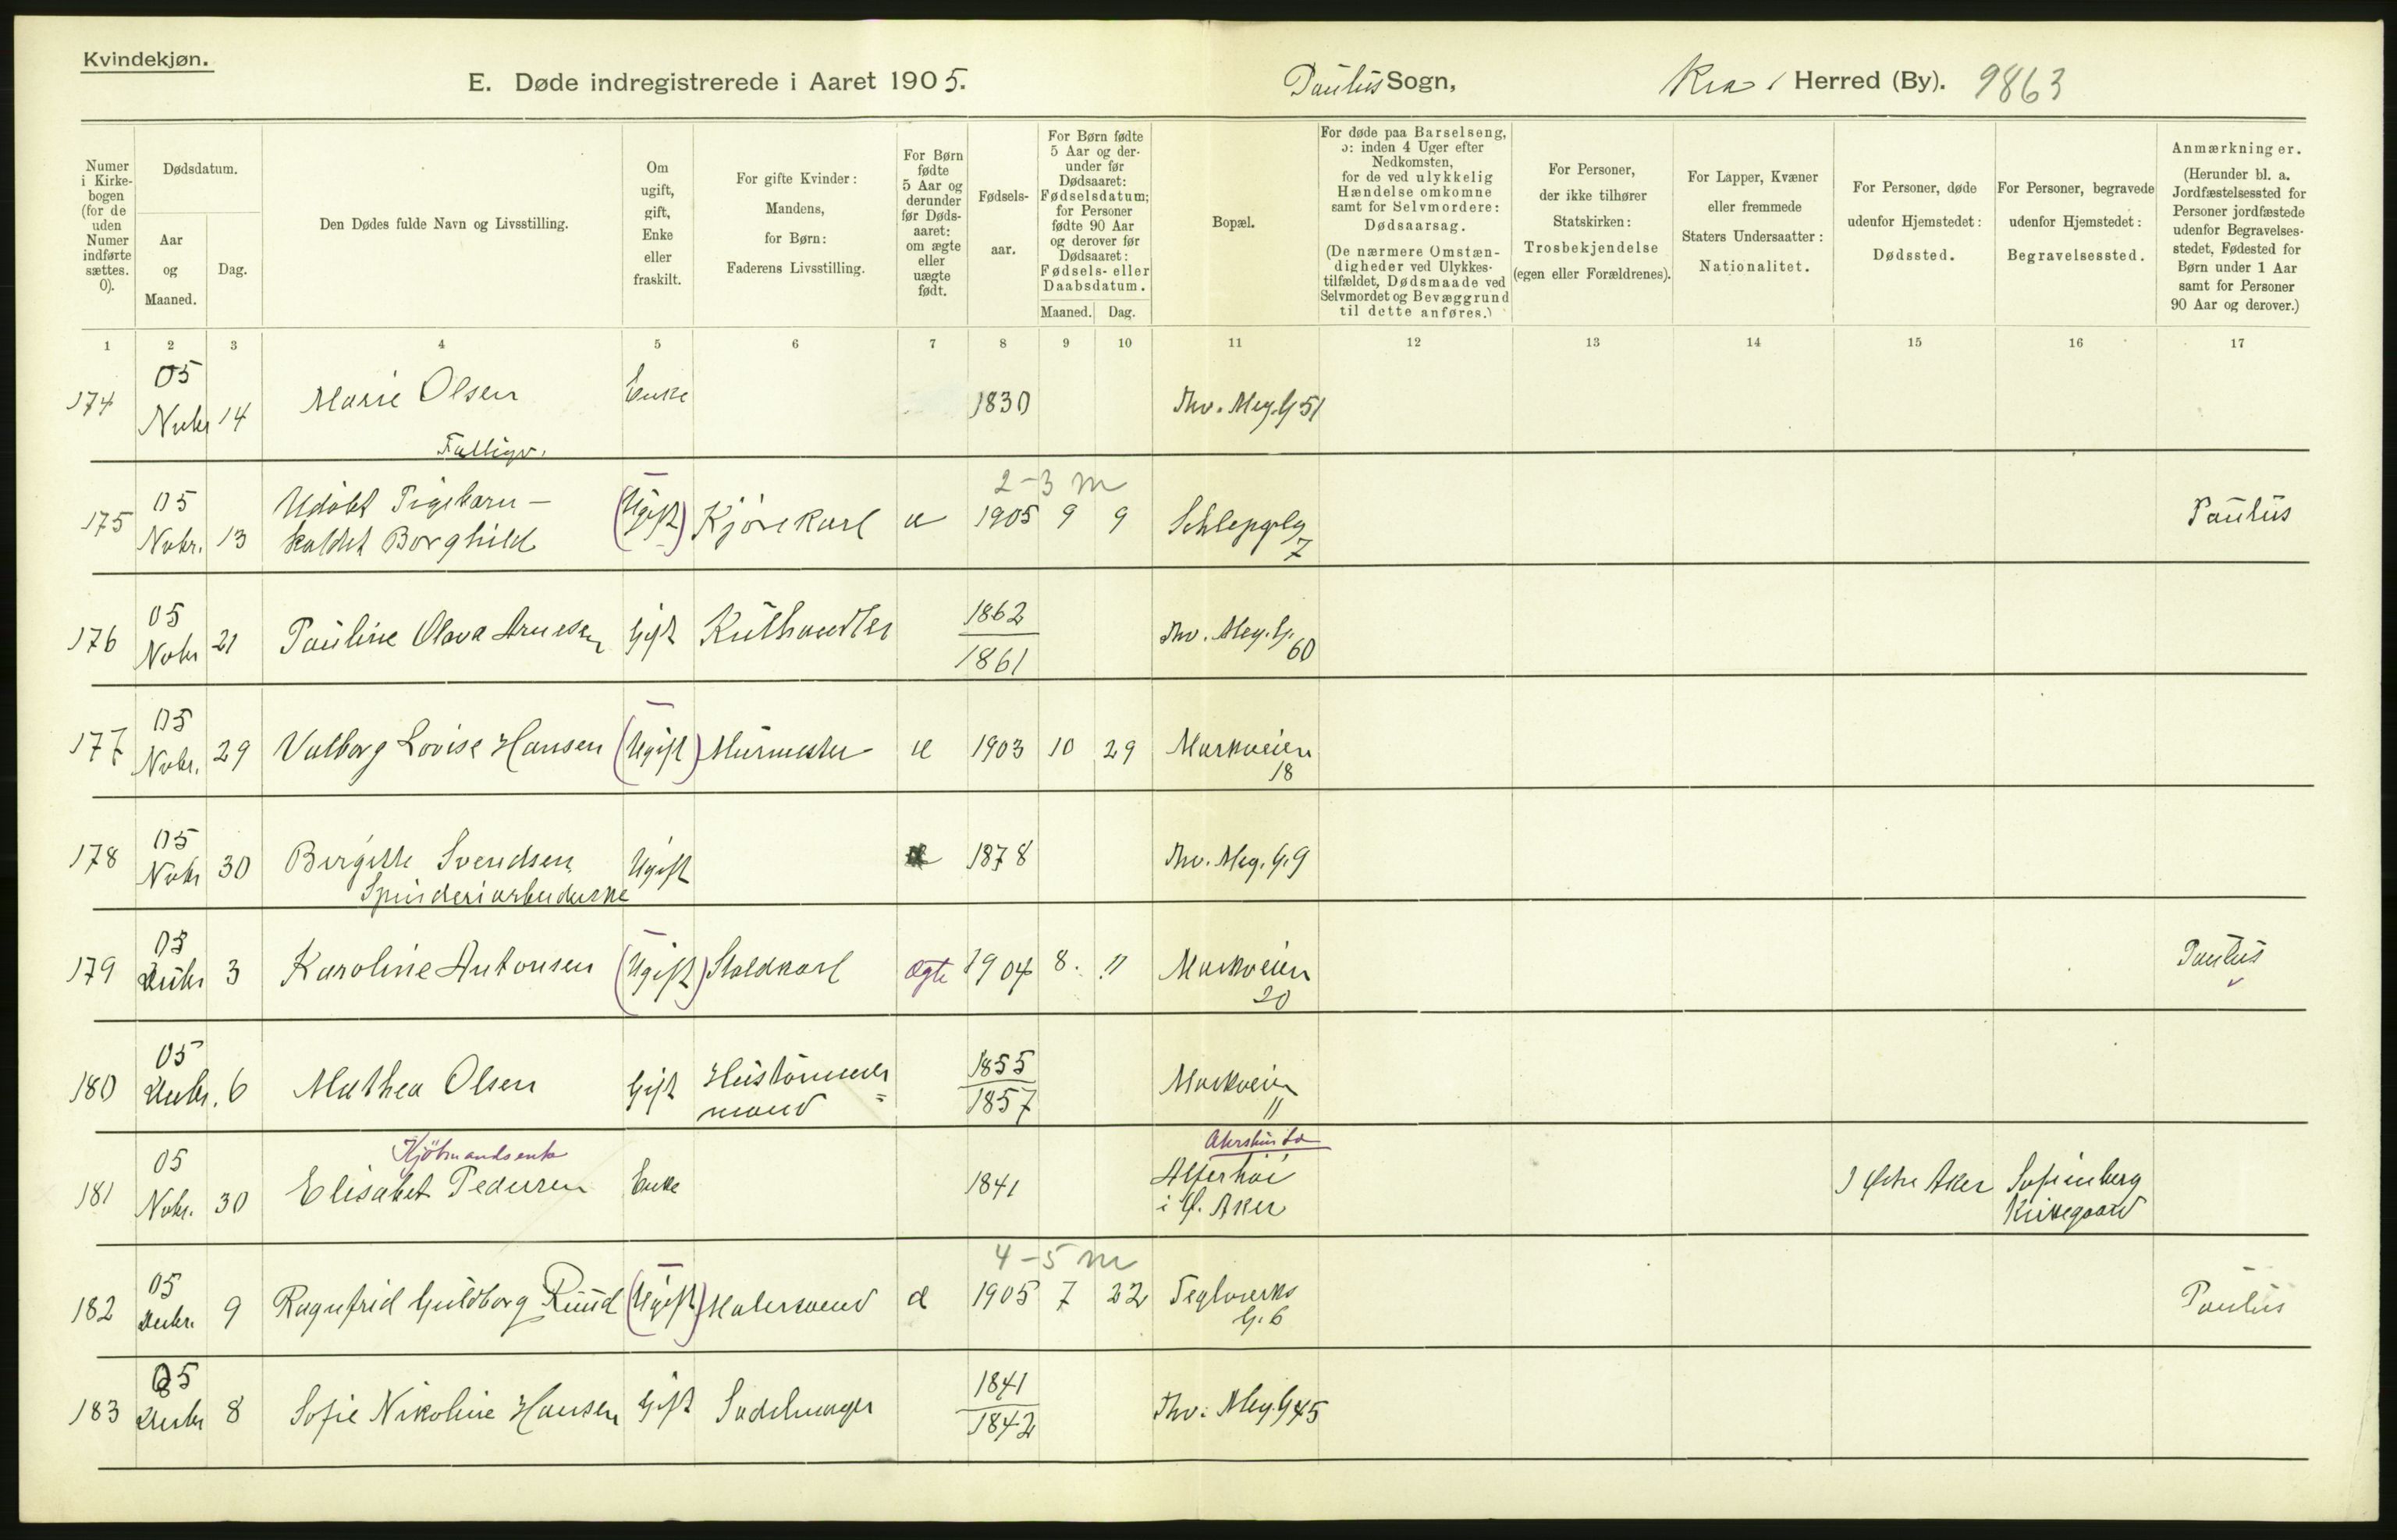 Kvindekjøn.
E. Døde indregistrerede i Aaret 1905.
Paulus Sogn,
Kra. Herred (By). 9863
Numer i Kirke-bogen (for de uden Numer indførte sættes. 0).
Dødsdatum.
Aar og Maaned.
Dag.
Den Dødes fulde Navn og Livsstilling.
Om ugift, gift, Enke eller fraskilt.
For gifte Kvinder: Mandens, for Børn: Faderens Livsstilling.
For Børn fødte 5 Aar og derunder før Døds-aaret: om ægte eller uægte født.
Fødsels-aar.
For Børn fødte 5 Aar og der-under før Dødsaaret: Fødselsdatum; for Personer fødte 90 Aar og derover før Dødsaaret: Fødsels- eller Daabsdatum.
Maaned.
Dag.
Bopæl.
For døde paa Barselseng, ɔ: inden 4 Uger efter Nedkomsten, for de ved ulykkelig Hændelse omkomne samt for Selvmordere: Dødsaarsag.
(De nærmere Omstæn-digheder ved Ulykkes-tilfældet, Dødsmaade ved Selvmordet og Bevæggrund til dette anføres.)
For Personer, der ikke tilhører Statskirken: Trosbekjendelse (egen eller Forældrenes).
For Lapper, Kvæner eller fremmede Staters Undersaatter: Nationalitet.
For Personer, døde udenfor Hjemstedet: Dødssted.
For Personer, begravede udenfor Hjemstedet: Begravelsessted.
Anmærkninger. (Herunder bl. a. Jordfæstelsessted for Personer jordfæstede udenfor Begravelses-stedet, Fødested for Børn under 1 Aar samt for Personer 90 Aar og derover.)
1 2 3 4 5 6 7 8 9 10 11 12 13 14 15 16 17
174 05 Nvbr 14 Marie Olsen Enke 1830 Thv. Mey. G 51
Fattigv.
2-3 m
175 05 Nvbr. 13 Udøbt Pigebarn - kaldet Borghild (Ugift) Kjørekarl u 1905 9 9 Schleppelg 7 Paulus
176 05 Nvbr 21 Pauline Olava Arnesen Gift Kulhandler 1862 1861 Thv. Mey. G. 60
177 05 Nvbr. 29 Valborg Lovise Hansen (Ugift) Murmester 1903 10 29 Markveien 18
178 05 Nvbr 30 Birgitte Svendsen Ugift 1878 Thv. Meg. G. 9
Spinderiarbeiderske
179 05 Desbr 3 Karoline Antonsen (Ugift) Staldkarl Ægte 1904 8. 11 Markveien 20 Paulus
180 05 Desbr. 6 Mathea Olsen Gift Hustømmermand 1855 1857 Markveien 11
Kjøbmandsenke
181 05 Nvbr. 30 Elisabet Pedersen Enke 1841 i Ø. Aker I Østre Aker Sofienberg Kirkegaard
4-5 m
182 05 Desbr. 9 Ragnfrid Guldborg Ruud (Ugift) Malersvend 1905 7 22 Teglverks G. 6 Paulus
183 05 Desbr 8 Sofie Nikoline Hansen Gift Sadelmager 1841 1842 Thv. Mey. G 45